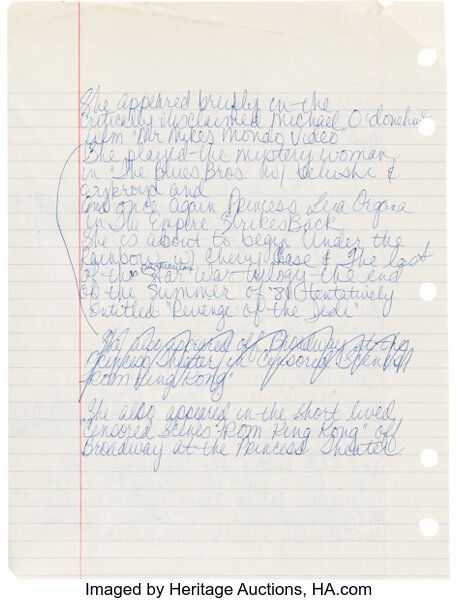 She appeared briefly in the
critically disclaimed Michael O'donahue
film "Mr Mikes Mondo Video"
She played the mystery woman
in The Blues Bros. w/ belushi &
aykroyd and
and once again Princess Leia Organa
in The Empire Strikes Back
She is about to begin Under the
Rainbow w/ Chevy Chase & The last
of this particular Star War trilogy - the end
of the summer of '81 tentatively
Entitled "Revenge of the Jedi"
She also appeared off Broadway at the
Princess Theater in "Censored Scenes
from King Kong"
She also appeared in the short lived
"Censored Scenes From King Kong" off
Broadway at the Princess Theater
Imaged by Heritage Auctions, HA.com